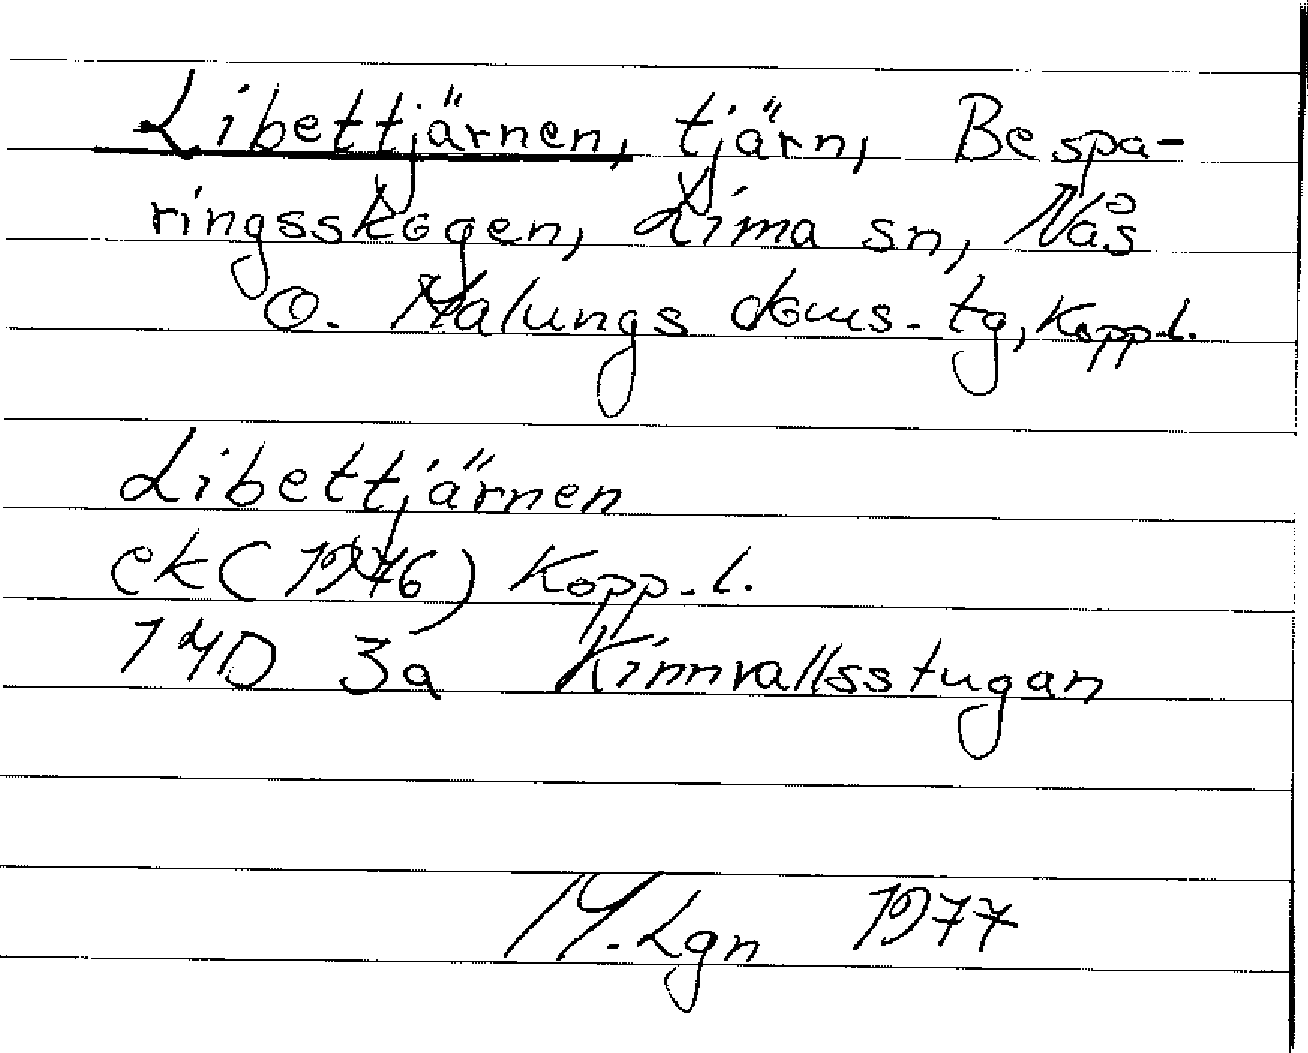 Libettjärnen, tjärn, Bespa-
ringsskogen, Lima sn, Nås
o. Malungs doms. tg, Kopp.l.
Libettjärnen
ek (1976) Kopp.l.
14D 3a Kinnvallsstugan
M. Lgn 1977